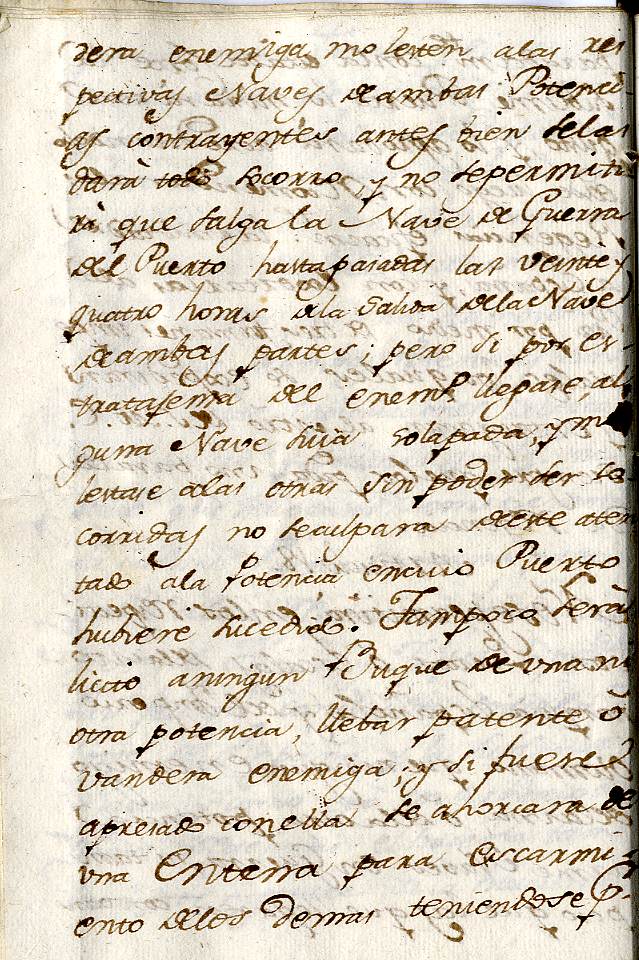 dera enemiga molesten alas res
pectivas Naves deambas Potenci
as contrayentes antes bien selas
dará todo socorro, y no sepermiti
rá que salga la Nave de Guerra
del Puerto hasta pasadas las veinte y
quatro horas ala Salida dela Nave
deambas partes; pero si por es-
tratasema del enemo. llegase, al
guna Nave suia solapada, y mo
lestase alas otras sin poder ser so
corridas no seculpara deeste aten
tado ala Potencia encuio Puerto
hubiere sucedido. Tampoco será
licito aningun Buque de una ni
otra potencia, llebar patente ó
vandera enemiga; y si fuere
apresado conella se ahorcara de
una Entena para escarmi
ento delos demas teniendose p.